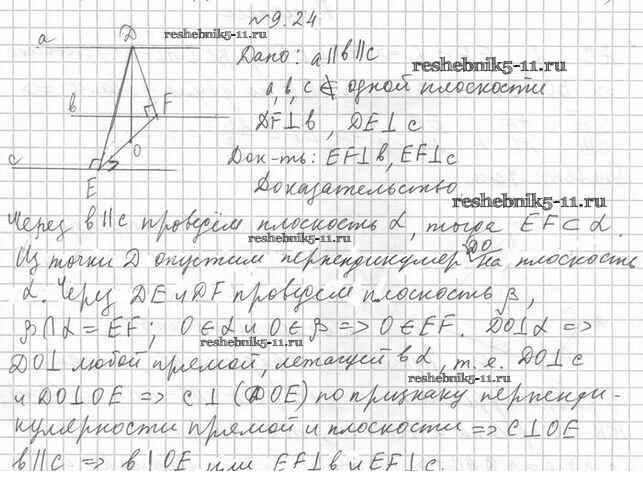 №9.24
reshebnik5-11.ru
a
D
Дано: a||b||c
reshebnik5-11.ru
a, b, c ⊄ одной плоскости
b
F
DF⊥b, DE⊥c
O
Док-ть: EF⊥b, EF⊥c
c
E
Доказательство.
reshebnik5-11.ru
Через b||c проведём плоскость α, тогда EF⊂α.
reshebnik5-11.ru
DO
Из точки D опустим перпендикуляр на плоскость
α. Через DE и DF проведём плоскость β,
reshebnik5-11.ru
β∩α = EF; O∈α и O∈β => O∈EF. DO⊥α =>
reshebnik5-11.ru
DO⊥ любой прямой, лежащей в α, т.е. DO⊥c
reshebnik5-11.ru
и DO⊥OE => c⊥(DOE) по признаку перпенди-
кулярности прямой и плоскости => c⊥OE
b||c => b⊥OE или EF⊥b и EF⊥c.